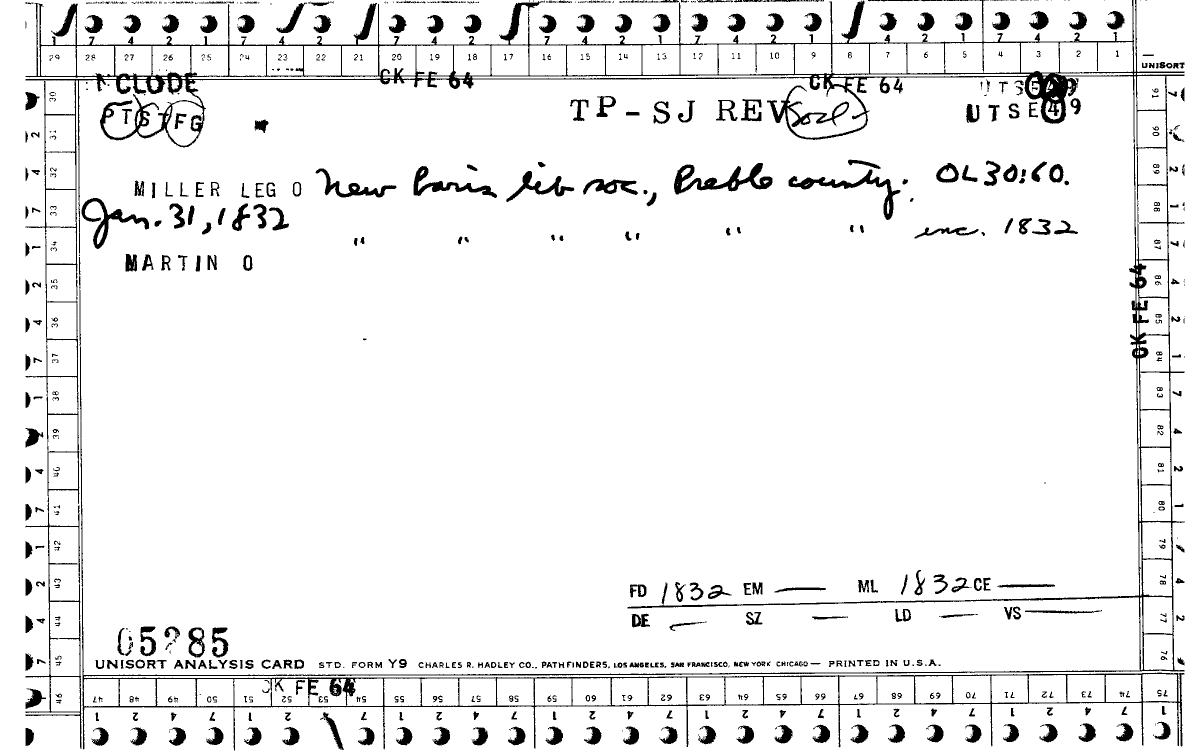 7 4 2 1 7 4 2 1 7 4 2 1 7 4 2 1 7 4 2 1 7 4 2 1 7 4 2 1
29 28 27 26 25 24 23 22 21 20 19 18 17 16 15 14 13 12 11 10 9 8 7 6 5 4 3 2 1
UNISORT
NCLODE CK FE 64 CK FE 64
PTSTFG TP-SJ REV Socl UTSE49
MILLER LEG O New Paris lib soc., Preble county. OL30:60.
Jan. 31, 1832
" " " " " " inc. 1832
MARTIN O
OK FE 64
FD 1832 EM — ML 1832 CE —
DE — SZ — LD — VS —
05285
UNISORT ANALYSIS CARD STD. FORM Y9 CHARLES R. HADLEY CO., PATHFINDERS, LOS ANGELES, SAN FRANCISCO, NEW YORK CHICAGO — PRINTED IN U.S.A.
OK FE 64
46 47 48 49 50 51 52 53 54 55 56 57 58 59 60 61 62 63 64 65 66 67 68 69 70 71 72 73 74 75